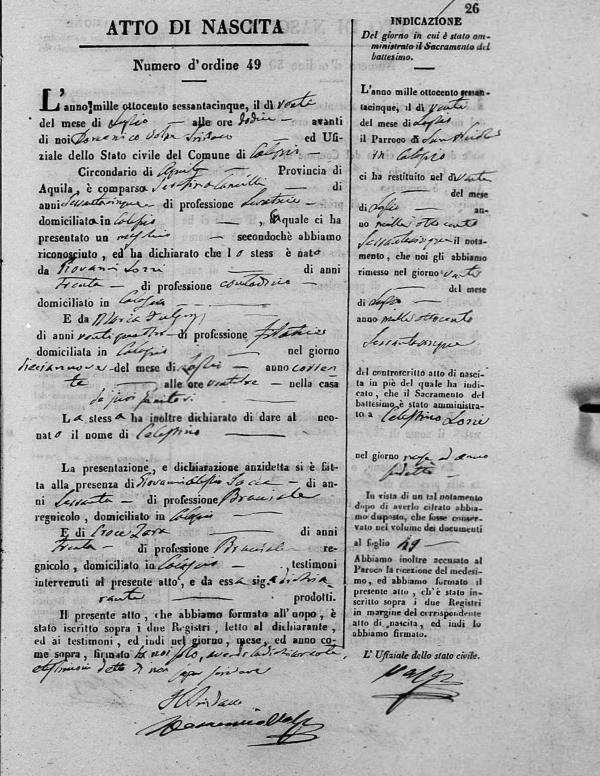 26
ATTO DI NASCITA
Numero d'ordine 49
L'anno mille ottocento sessantacinque, il dì venti
del mese di Luglio alle ore dodici avanti
di noi Domenico Volpe Sindaco ed Ufi-
ziale dello Stato civile del Comune di
Circondario di Aquila Provincia di
Aquila, è comparsa di
anni Sessantacinque di professione Levatrice
domiciliata in , quale ci ha
presentato un maschio secondochè abbiamo
riconosciuto, ed ha dichiarato che lo stess è nato
da Giovanni di anni
trenta di professione contadino
domiciliato in
E da Maria
di anni ventiquattro di professione filatrice
domiciliata in nel giorno
diciannove del mese di Luglio anno corren-
te alle ore ventitre nella casa
La stessa ha inoltre dichiarato di dare al neo-
nato il nome di Celestino
La presentazione, e dichiarazione anzidetta si è fat-
ta alla presenza di Giovanni di an-
ni Sessanta di professione Bracciale
regnicolo, domiciliato in
E di Croce di anni
trenta di professione Bracciale re-
gnicolo, domiciliato in , testimoni
intervenuti al presente atto, e da essa sig.
prodotti.
Il presente atto, che abbiamo formato all'uopo, è
stato iscritto sopra i due Registri, letto al dichiarante,
ed ai testimoni, ed indi nel giorno, mese, ed anno co-
me sopra, firmato da noi solo, avendo la dichiarante,
e testimoni detto di non saper scrivere
Il Sindaco
Domenico Volpe
INDICAZIONE
Del giorno in cui è stato am-
ministrato il Sacramento del
battesimo.
L'anno mille ottocento sessan-
tacinque, il dì venti
del mese di Luglio
il Parroco di
in
ci ha restituito nel dì venti
del mese
di Luglio an-
no mille ottocento
Sessantacinque il nota-
mento, che noi gli abbiamo
rimesso nel giorno venti
del mese
di Luglio
anno mille ottocento
Sessantacinque
del controscritto atto di nasci-
ta in piè del quale ha indi-
cato, che il Sacramento del
battesimo è stato amministra-
to a Celestino
nel giorno mese ed anno
sudetto
In vista di un tal notamento
dopo di averlo cifrato abbia-
mo disposto, che fosse conser-
vato nel volume dei documenti
al foglio 49
Abbiamo inoltre accusato al
Paroco la ricezione del medesi-
mo, ed abbiamo formato il
presente atto, ch'è stato in-
scritto sopra i due Registri
in margine del corrispondente
atto di nascita, ed indi lo
abbiamo firmato.
L' Ufiziale dello stato civile.
Volpe